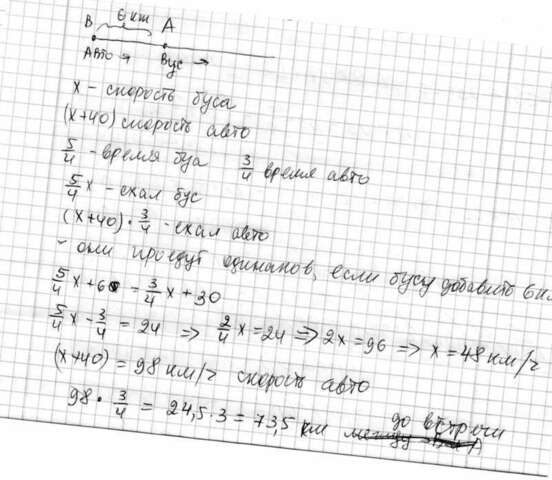 6 км
В А
Авто → Бус →
х – скорость буса
(х+40) скорость авто
5/4 - время буа 3/4 время авто
5/4 х - ехал бус
(х+40) · 3/4 - ехал авто
- они проедут одинаков, если бусу добавить 6 км
5/4 х + 6 = 3/4 х + 30
5/4 х - 3/4 = 24 => 2/4 х = 24 => 2х = 96 => х = 48 км/г
(х+40) = 98 км/г скорость авто
98 · 3/4 = 24,5 · 3 = 73,5 км до встречи